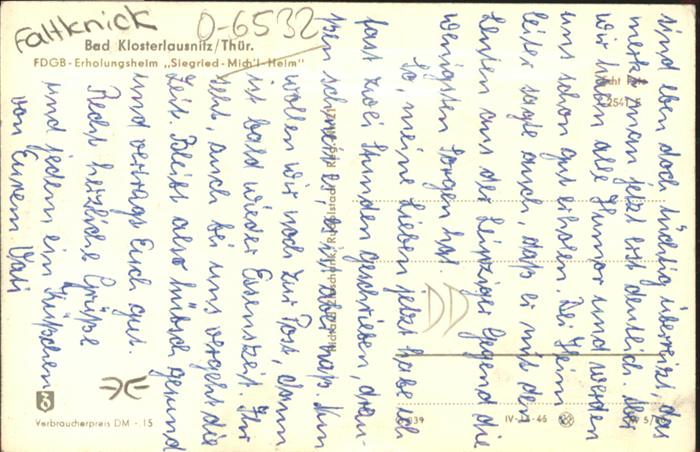 Faltknick
0-6532
Bad Klosterlausnitz/Thür.
FDGB-Erholungsheim „Siegried-Mich'l-Heim"
Echt Foto
sind eben doch tüchtig überreizt, das
merkt man jetzt erst deutlich. Aber
wir haben alle Humor und werden
uns schon gut erholen. Der Heim-
leiter sagte auch, daß er mit den
Leuten aus der Leipziger Gegend die
wenigsten Sorgen hat.
So, meine Lieben jetzt habe ich
fast zwei Stunden geschrieben, drau-
ßen schneit es, es ist aber naß. Nun
wollen wir noch zur Post, dann
ist bald wieder Essenszeit. Ihr
seht, auch bei uns vergeht die
Zeit. Bleibt also hübsch gesund
und vertragt Euch gut.
Recht herzliche Grüße
und jedem ein Küßchen
von Eurem Vati
Rudolstadt
Verbraucherpreis DM -.15
IV-14-46